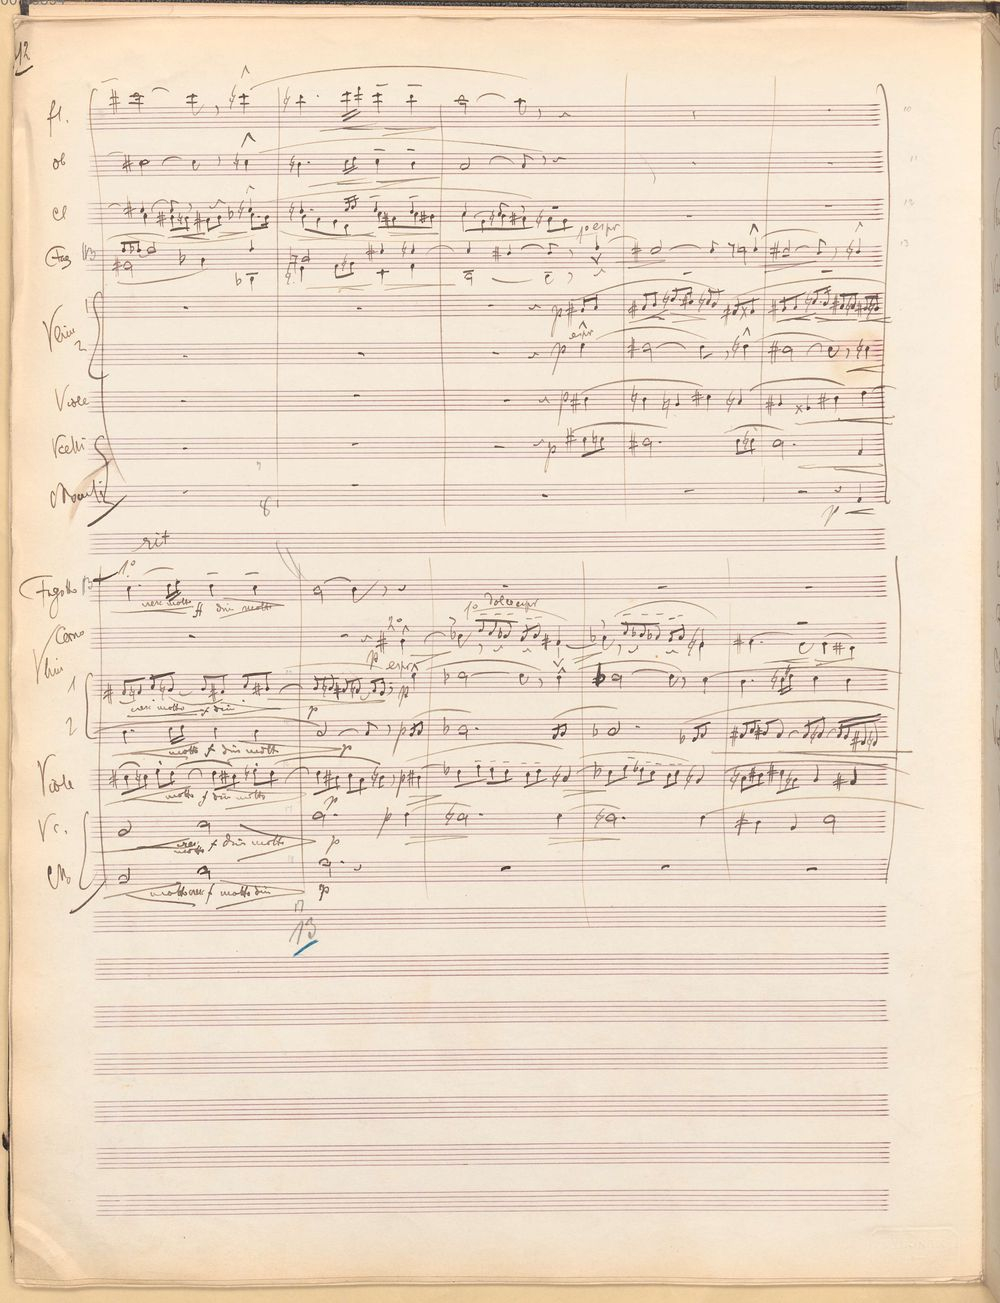 12
fl.
ob
cl
1º espr
Fag
Vlini 1
p
espr
2
p
Viole
p
Vcelli
p
8
p
rit
1º
Fagotto
cresc molto ff dim molto
1º dolce espr
Corno
2º
p espr
Vlini
1
cresc molto f dim
p
p
2
molto f dim molto
p
p
Viole
molto f dim molto
p
p
Vc.
cresc molto f dim molto
p
p
Cb
molto cresc f molto dim
p
13